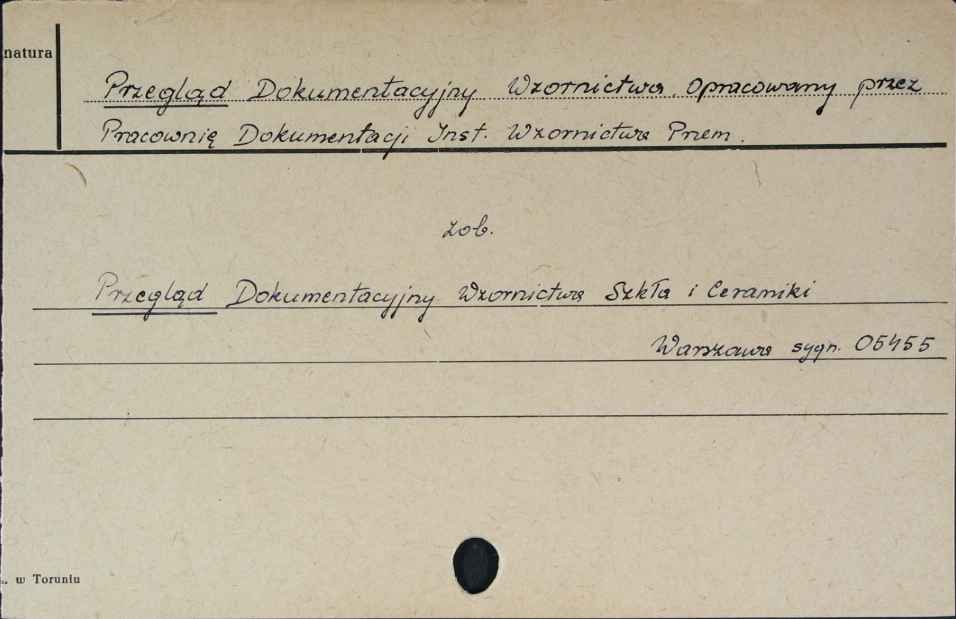 natura
Przegląd Dokumentacyjny Wzornictwa. Opracowany przez
Pracownię Dokumentacji Inst. Wzornictwa Przem.
zob.
Przegląd Dokumentacyjny Wzornictwa Szkła i Ceramiki
Warszawa sygn. 05455
w Toruniu